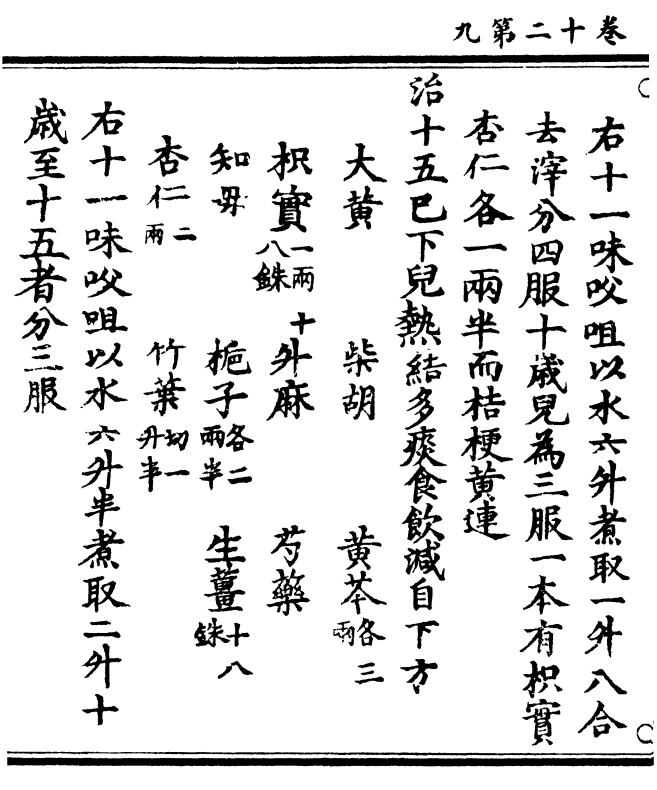 卷十二第九
右十一味㕮咀以水六升煮取一升八合
去滓分四服十歲兒為三服一本有枳實
杏仁各一兩半而桔梗黄連
治十五巳下兒熱結多痰食飲減自下方
大黄 柴胡 黄芩各三兩
枳實一兩十八銖 升麻 芍藥
知母 梔子各二兩半 生薑十八銖
杏仁二兩 竹葉切一升半
右十一味㕮咀以水六升半煮取二升十
歲至十五者分三服